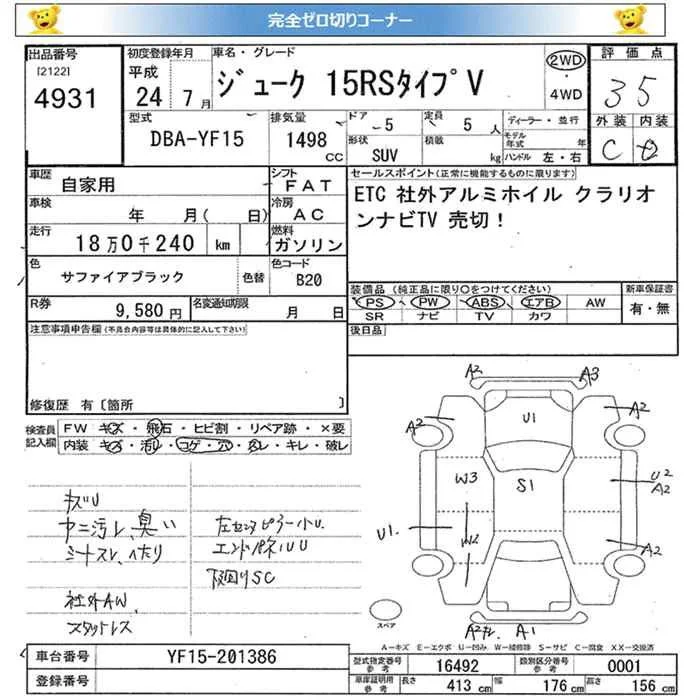 完全ゼロ切りコーナー
出品番号
[2122]
4931
初度登録年月
平成
24 7 月
車名・グレード
ジューク 15RSタイプV
2WD
・
4WD
評価点
3 5
外装 内装
C
型式
DBA-YF15
排気量
1498
cc
ドア
-5
定員
5 人
形状
SUV
積載
kg
ディーラー・並行
モデル年式 年
ハンドル 左・右
車歴
自家用
シフト
FAT
車検
年 月( 日)
冷房
AC
走行
18万0千240 km
燃料
ガソリン
色
サファイアブラック
色替
色コード
B20
R券
9,580 円
名変通知期限
月 日
セールスポイント(正常に機能するものに限ります)
ETC 社外アルミホイル クラリオ
ンナビTV 売切!
装備品(純正品に限り○をつけてください)
新車保証書
PS PW ABS エアB AW
SR ナビ TV カワ
有・無
後日品
注意事項申告欄(不具合内容等は具体的に記入して下さい)
修復歴 有〔箇所 〕
検査員
記入欄
FW キズ・飛石・ヒビ割・リペア跡・×要
内装 キズ・汚れ・コゲ・穴・スレ・キレ・破レ
キズU
ヤニ汚レ、臭い
シートスレ、へたり
社外AW、
スタットレス
左センタピラー小U.
エンドパネルU
下回りSC
A2
A3
A2
A2
U1
W3
S1
U2
A2
U1.
W2
A2
A1
スペア
A=キズ E=エクボ U=凹み W=補修跡 S=サビ C=腐食 XX=交換済
車台番号
YF15-201386
登録番号
型式指定番号
参考
16492
類別区分番号
参考
0001
車庫証明用
参考
長さ 413 cm
幅 176 cm
高さ 156 cm